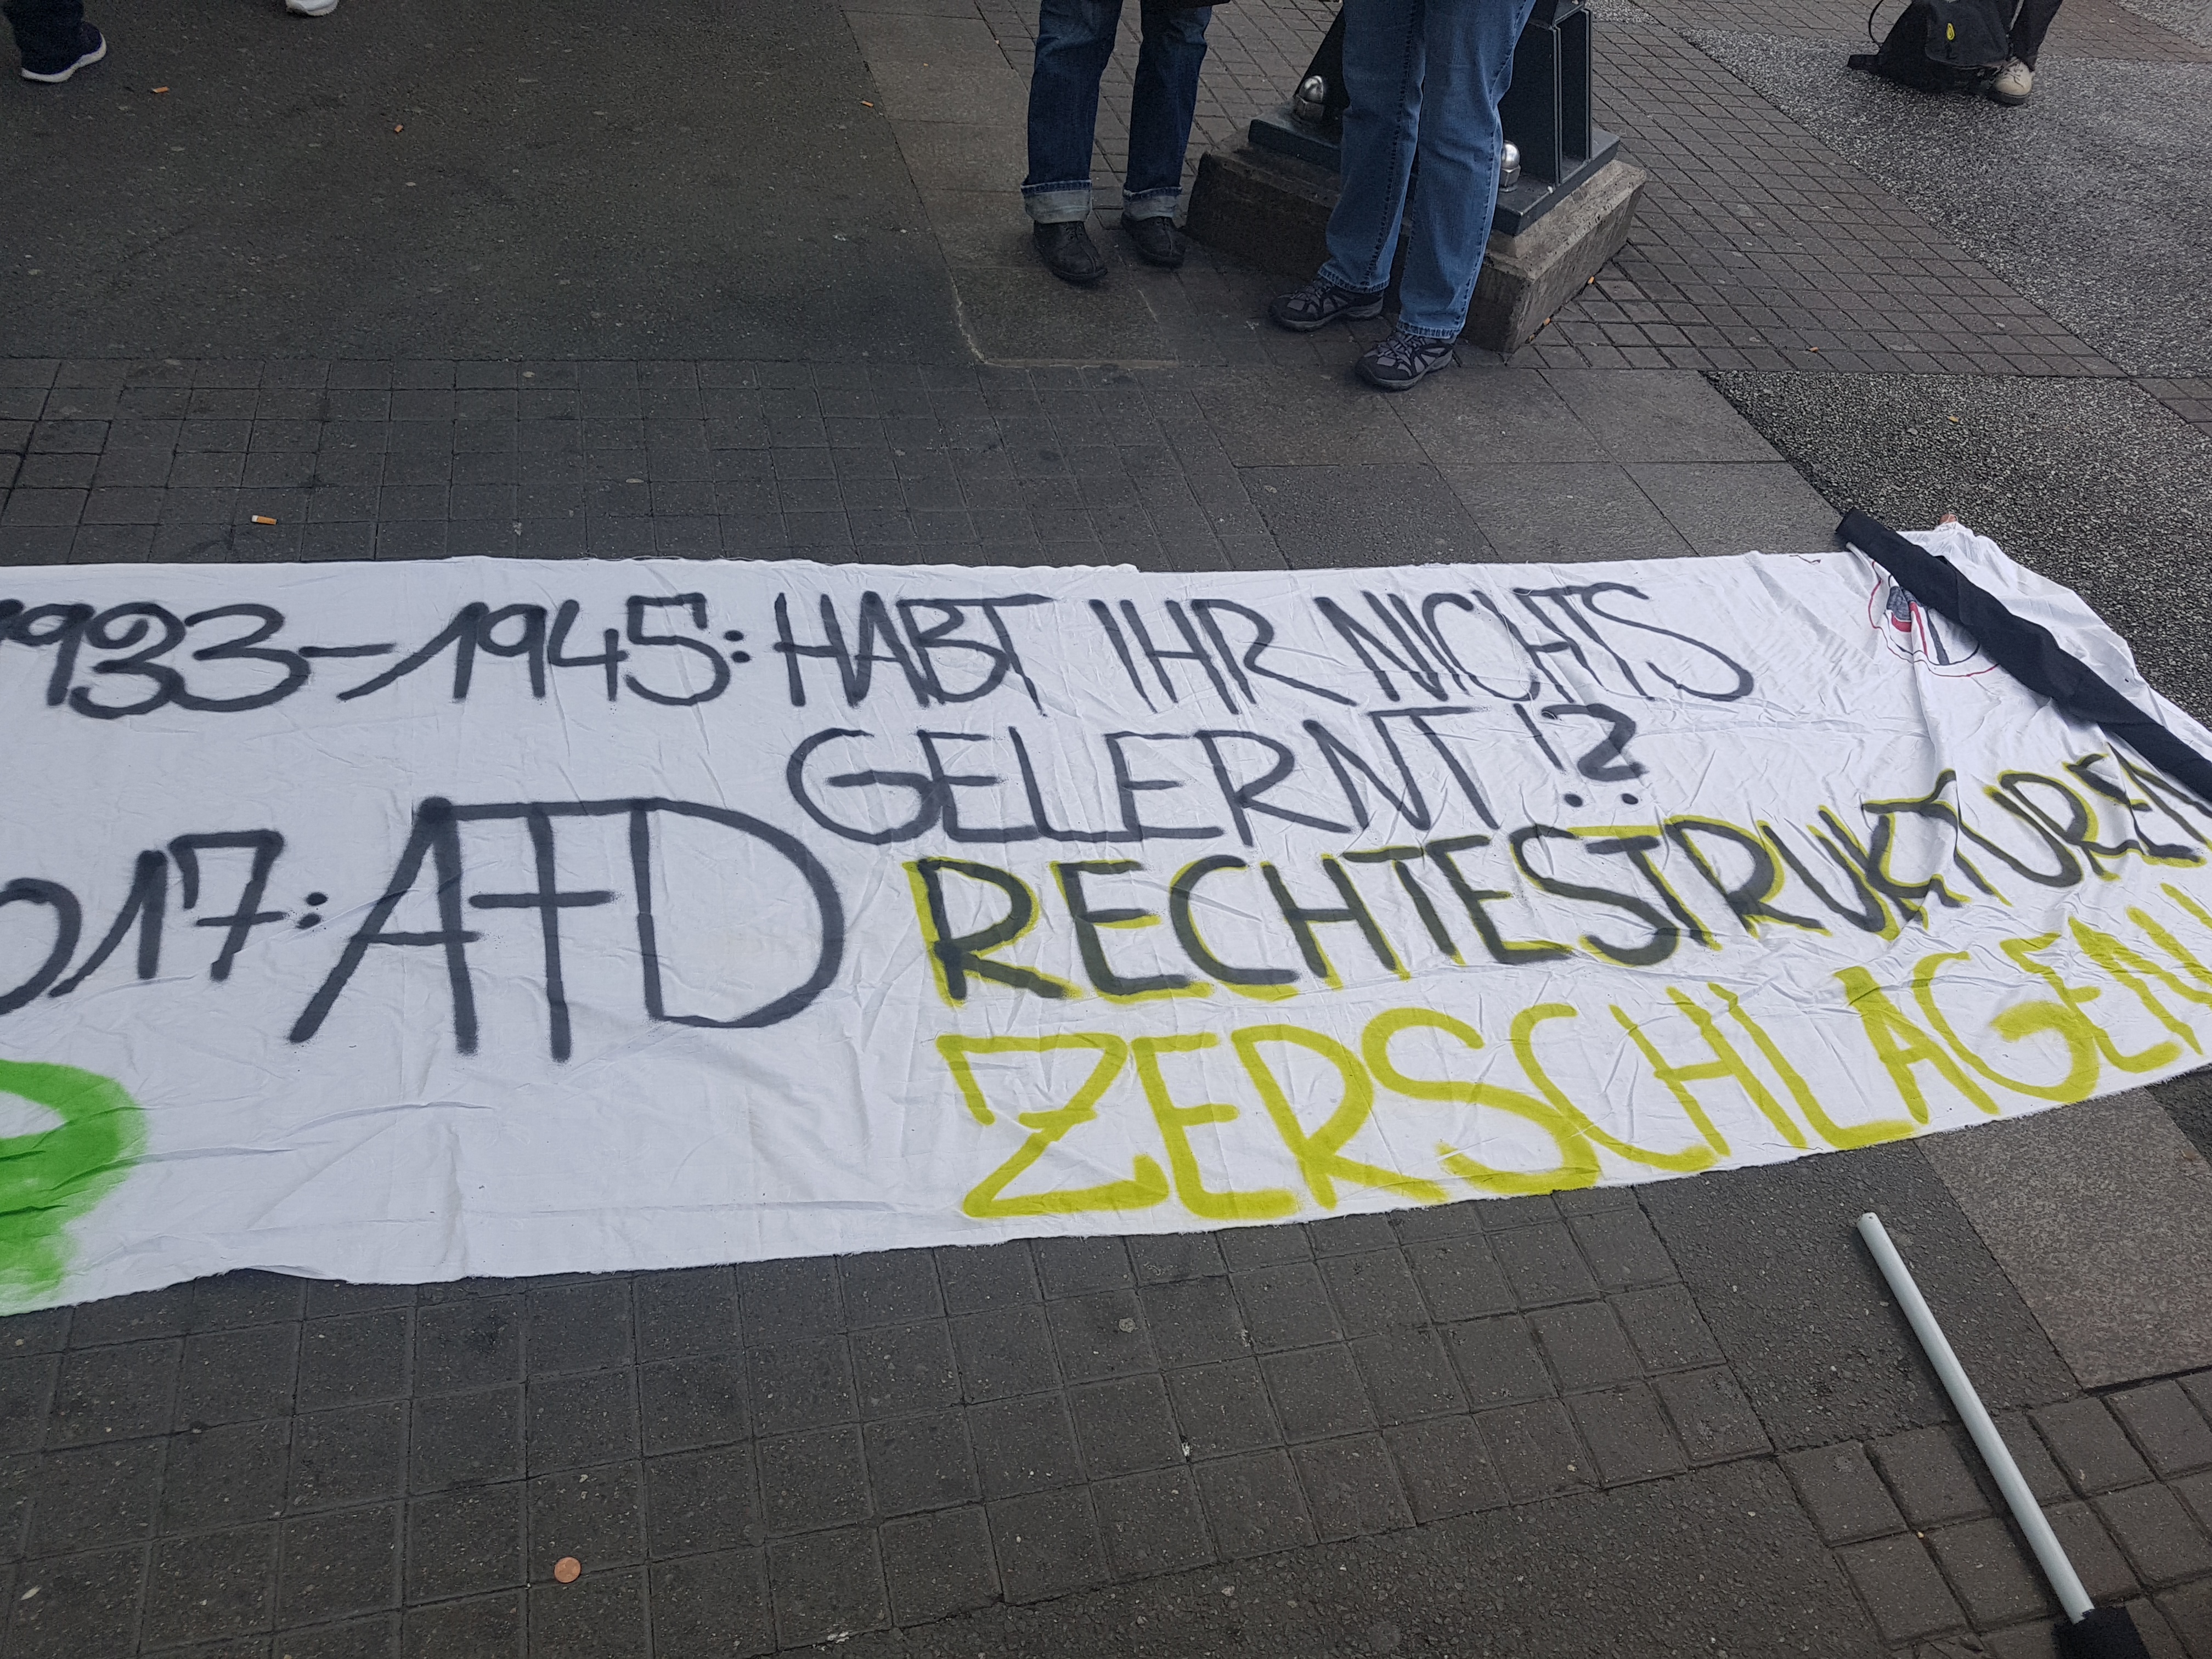 1933-1945: HABT IHR NICHTS
GELERNT!?
017: AFD
RECHTE STRUKTUREN
ZERSCHLAGEN